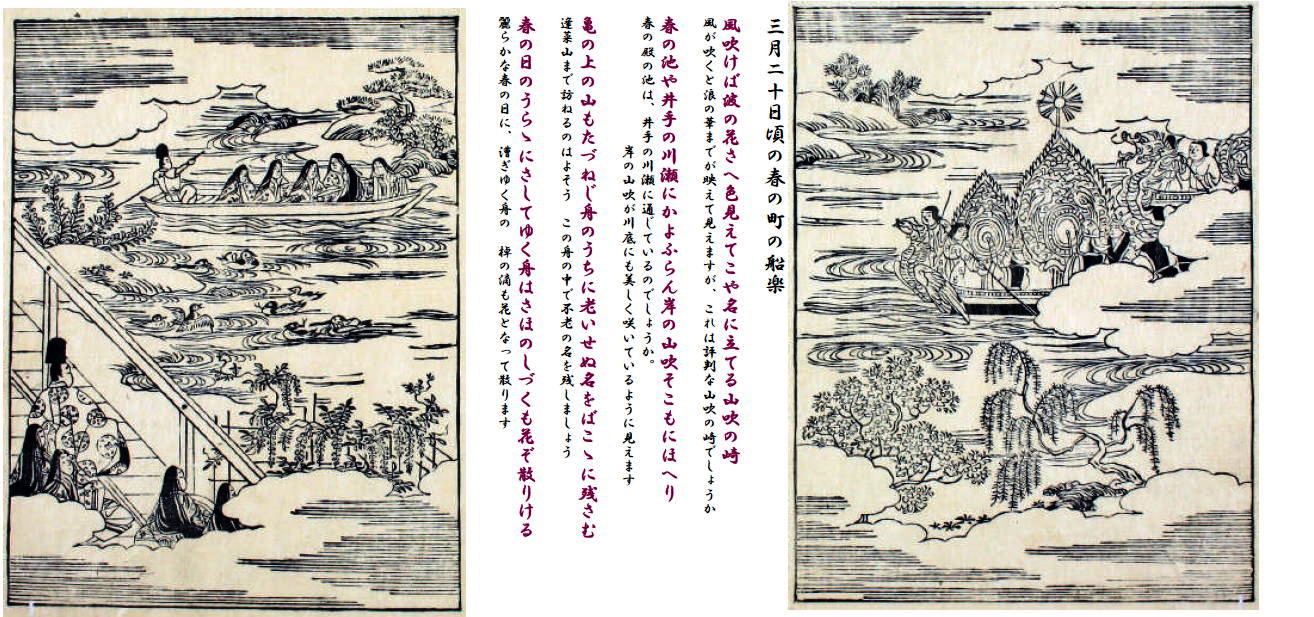 三月二十日頃の春の町の船楽
風吹けば波の花さへ色見えてこや名に立てる山吹の崎
風が吹くと浪の華までが映えて見えますが、これは評判な山吹の崎でしょうか
春の池や井手の川瀬にかよふらん岸の山吹そこもにほへり
春の殿の池は、井手の川瀬に通じているのでしょうか。
岸の山吹が川底にも美しく咲いているように見えます
亀の上の山もたづねじ舟のうちに老いせぬ名をばこゝに残さむ
蓬莱山まで訪ねるのはよそう この舟の中で不老の名を残しましょう
春の日のうらゝにさしてゆく舟はさほのしづくも花ぞ散りける
麗らかな春の日に、漕ぎゆく舟の 棹の滴も花となって散ります